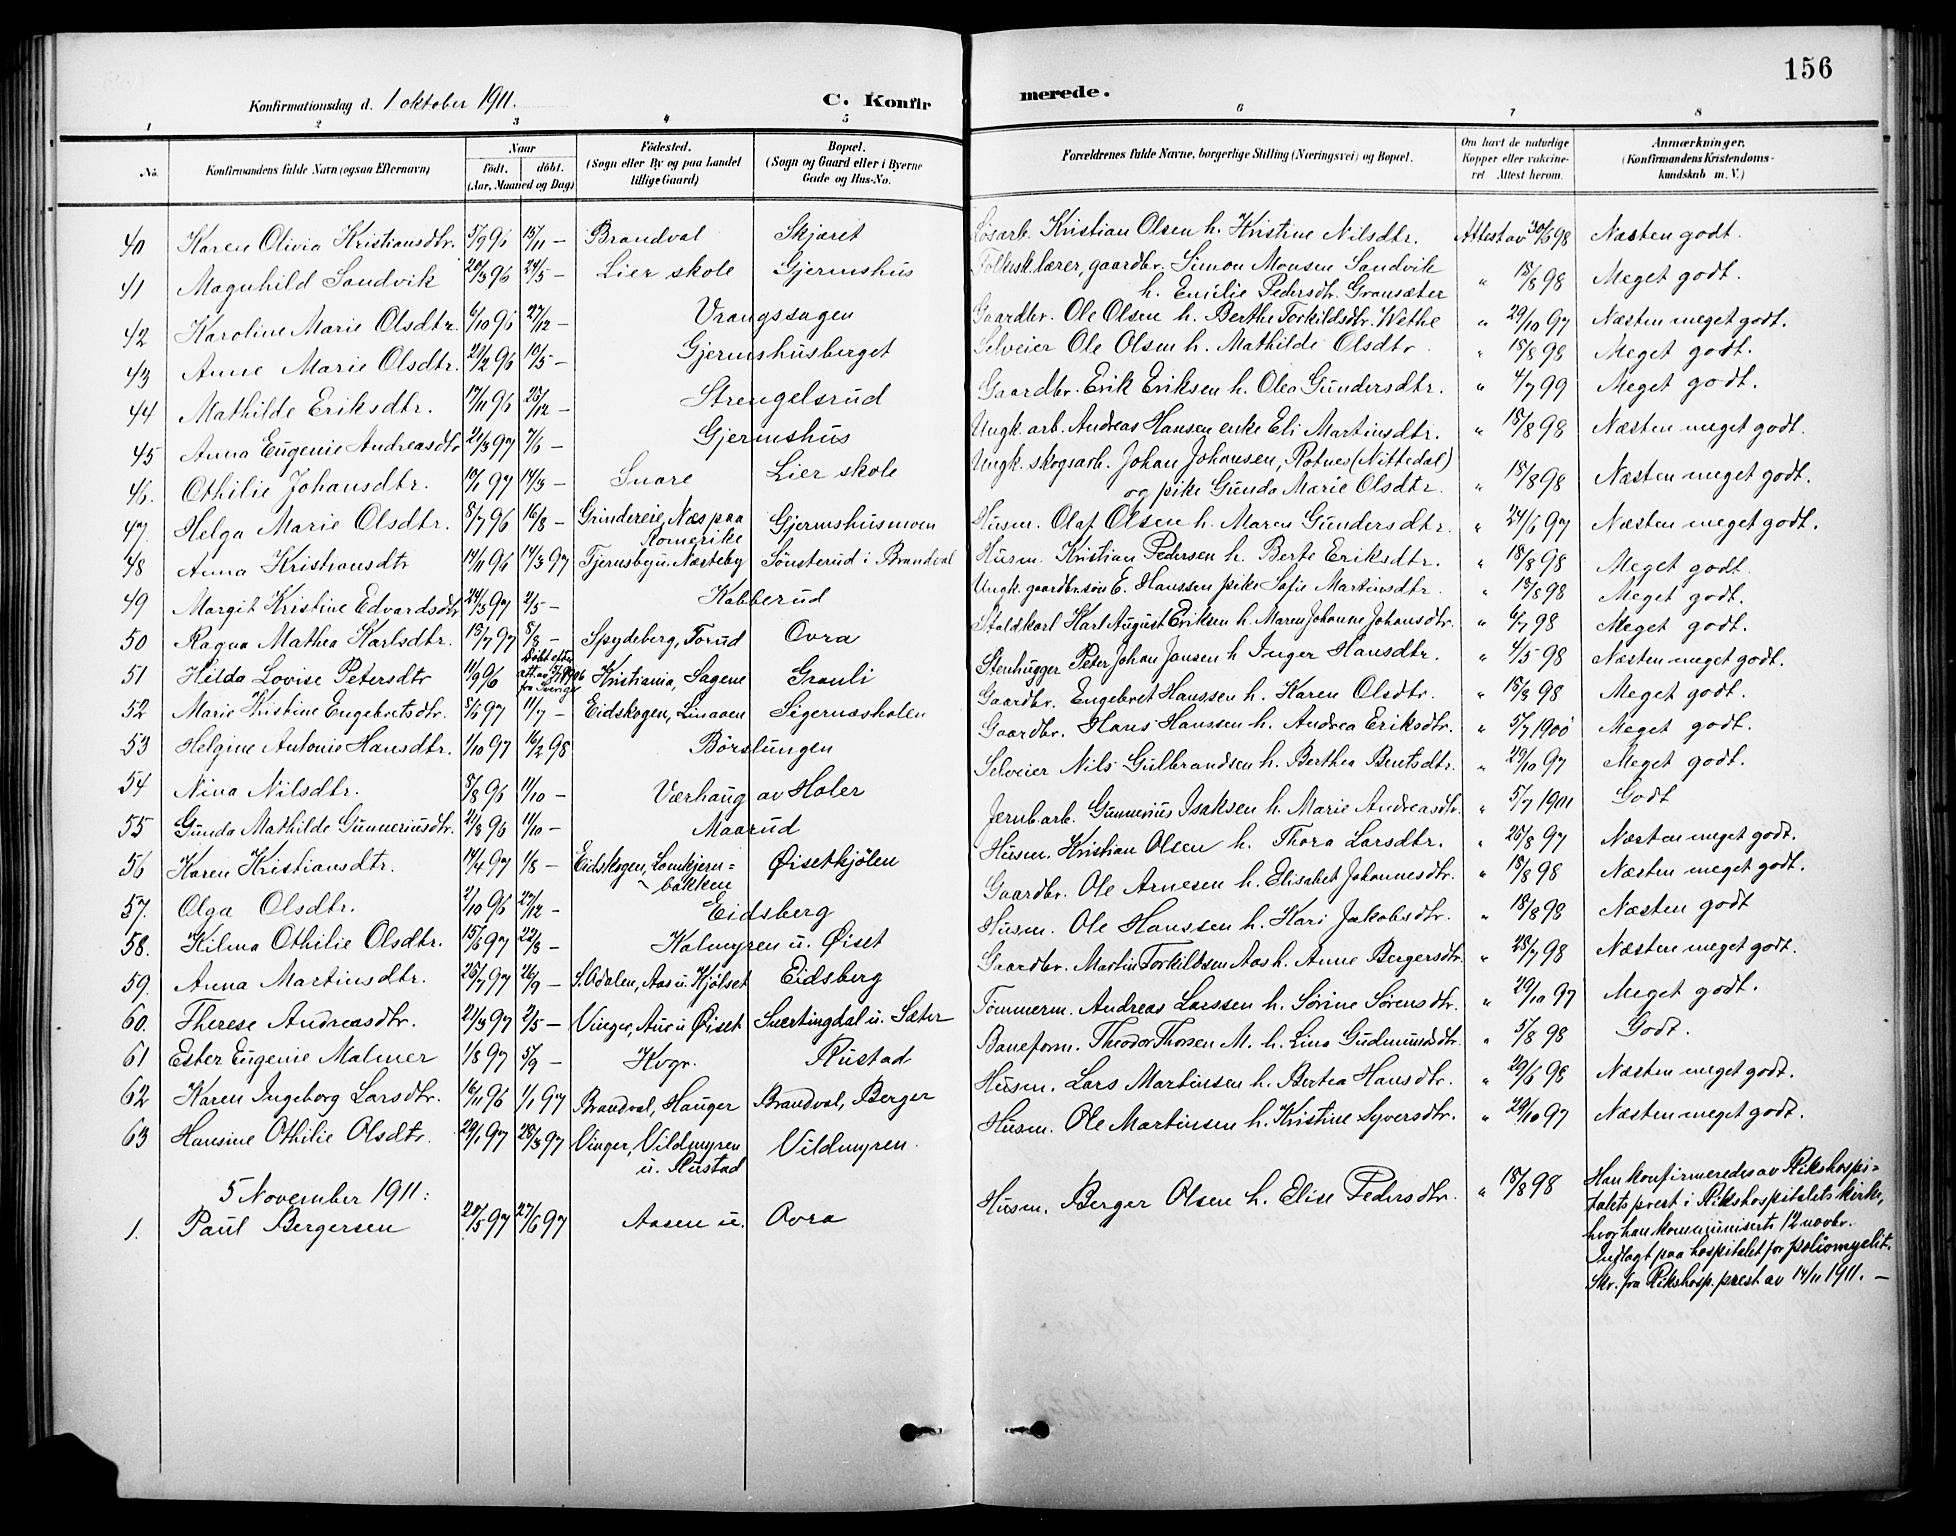 156
Konfirmationsdag d. 1 oktober 1911.
C. Konfirmerede.
1 2 3 4 5 6 7 8
No. Konfirmandens fulde Navn (ogsaa Efternavn) Naar födt. döbt. (Aar, Maaned og Dag) Födested. (Sogn eller By og paa Landet tillige Gaard) Bopæl. (Sogn og Gaard eller i Byerne Gade og Hus-No. Forældrenes fulde Navne, borgerlige Stilling (Næringsvei) og Bopæl. Om havt de naturlige Kopper eller vakcineret Attest herom. Anmærkninger. (Konfirmandens Kristendomskundskab m. V.)
40 Karen Olivia Kristiansdtr. 5/9 96 15/11 – Brandval Skjæret Løsarb. Kristian Olsen h. Kristine Nilsdtr. Attest av 30/6 98 Næsten godt.
41 Magnhild Sandvik 20/3 96 24/5 – Lier skole Gjermshus Folkesk.lærer, gaardbr. Simon Monsen Sandvik h. Emilie Pedersdtr. Gransæter " 18/8 98 Meget godt.
42 Karoline Marie Olsdtr. 6/10 96 27/12 – Vrangssagen Gaardbr. Ole Olsen h. Berthe Torkildsdtr. Wethe " 29/10 97 Næsten meget godt.
43 Anne Marie Olsdtr. 21/2 96 10/5 – Gjermshusberget Selveier Ole Olsen h. Mathilde Olsdtr. " 18/8 98 Meget godt.
44 Mathilde Eriksdtr. 17/11 96 23/12 – Strengelsrud Gaardbr. Erik Eriksen h. Olea Gundersdtr. " 4/7 99 Meget godt.
45 Anna Eugenie Andreasdtr 21/3 97 7/6 – Gjermshus Ungk. arb. Andreas Hansen enke Eli Martinsdtr. " 18/8 98 Næsten meget godt.
46. Othilie Johansdtr. 10/1 97 14/3 – Snare Lier skole Ungk. skogsarb. Johan Johansen, Rotnes (Nittedal) og pike Gunda Marie Olsdtr. " 18/8 98 Næsten meget godt.
47. Helga Marie Olsdtr. 8/7 96 16/8 – Grindereie, Næs paa Romerike Gjermshusmoen Husm. Olaf Olsen h. Maren Gundersdtr. " 24/6 97 Næsten meget godt.
48 Anna Kristiansdtr 14/11 96 14/3 97 Tjernsby u. Næsteby Sönsterud i Brandval Husm. Kristian Pedersen h. Berte Eriksdtr. " 18/8 98 Meget godt.
49 Margit Kristine Edvardsdtr 24/3 97 2/5 – Kabberud Ungk. gaardbr.søn E. Hanssen pike Sofie Martinsdtr. " 18/8 98 Meget godt.
50 Ragna Mathea Karlsdtr. 13/7 97 8/8 – Spydeberg, Torud Ovra Staldkarl Karl August Eriksen h. Maren Johanne Johansdtr. " 6/7 98 Meget godt.
51 Hilda Lovise Petersdtr 11/9 96 Döbt efter att. av fra Sverige Kristiania, Sagene Granli Stenhugger Peter Johan Jansen h. Inger Hansdtr. " 4/5 98 Næsten meget godt.
52 Marie Kristine Engebretsdtr. 8/6 97 11/7 – Eidskogen, Linaaen Sigernæsholen Gaardbr. Engebret Hanssen h. Karen Olsdtr. " 18/8 98 Meget godt.
53 Helgine Antonie Hansdtr. 1/10 97 16/2 98 Börslungen Gaardbr. Hans Hanssen h. Andrea Eriksdtr. " 5/7 1900 Meget godt.
54 Nina Nilsdtr. 8/8 96 11/10 – Værhaug av Holer Selveier Nils Gulbrandsen h. Berthea Berntsdtr. " 29/10 97 Meget godt.
55 Gunda Mathilde Gunneriusdtr. 21/8 96 11/10 – Maarud Jernbarb. Gunnerius Isaksen h. Marie Andreasdtr. " 5/7 1901 Godt
56 Karen Kristiansdtr. 14/4 97 1/8 – Eidskogen, Lomkjernbakken Øisetkjölen Husm. Kristian Olsen h. Thora Larsdtr. " 25/8 97 Næsten meget godt.
57. Olga Olsdtr. 2/10 96 27/12 – Eidsberg Gaardbr. Ole Arnesen h. Elisabet Johannesdtr. " 18/8 98 Næsten meget godt.
58. Hilma Othilie Olsdtr. 15/6 97 22/8 – Kalmyren u. Øiset Husm. Ole Hanssen h. Kari Jakobsdtr. " 18/8 98 Næsten godt
59. Anna Martinsdtr. 25/7 97 26/9 – S. Odalen, Aas u. Kjölset Eidsberg Gaardbr. Martin Torkildsen Aas h. Anne Bergersdtr. " 28/7 98 Næsten meget godt.
60. Therese Andreasdtr. 21/3 97 2/5 – Vinger, Aur u Øiset Svertingdal u. Sæter Tömmerm. Andreas Larssen h. Sörine Sörensdtr. " 29/10 97 Meget godt.
61 Ester Eugenie Malmer 1/8 97 5/9 – Kvgr. Rustad Baneform. Theodor Thorsen M. h. Lina Gudmundsdtr. " 5/8 98 Godt.
62 Karen Ingeborg Larsdtr. 16/11 96 1/1 97 Brandval, Hauger Brandval, Berger Husm. Lars Martinsen h. Bertea Hansdtr. " 29/6 98 Næsten meget godt.
63 Hansine Othilie Olsdtr. 29/1 97 28/3 97 Vinger, Vildmyren u. Rustad Vildmyren. Husm. Ole Martinsen h. Kristine Syversdtr. " 29/10 97 Næsten meget godt.
5 November 1911:
1. Paul Bergersen 20/5 97 27/6 97 Aasen u. Ovra Husm. Berger Olsen h. Elise Pedersdtr. " 18/8 98 Han konfirmeredes av Rikshospitalets prest i Rikshospitalets kirke,
hvor han kommuniserte 12 novbr.
Indlagt paa hospitalet for poliomyelit.
Skr. fra Rikshosp. prest av 14/11 1911. –